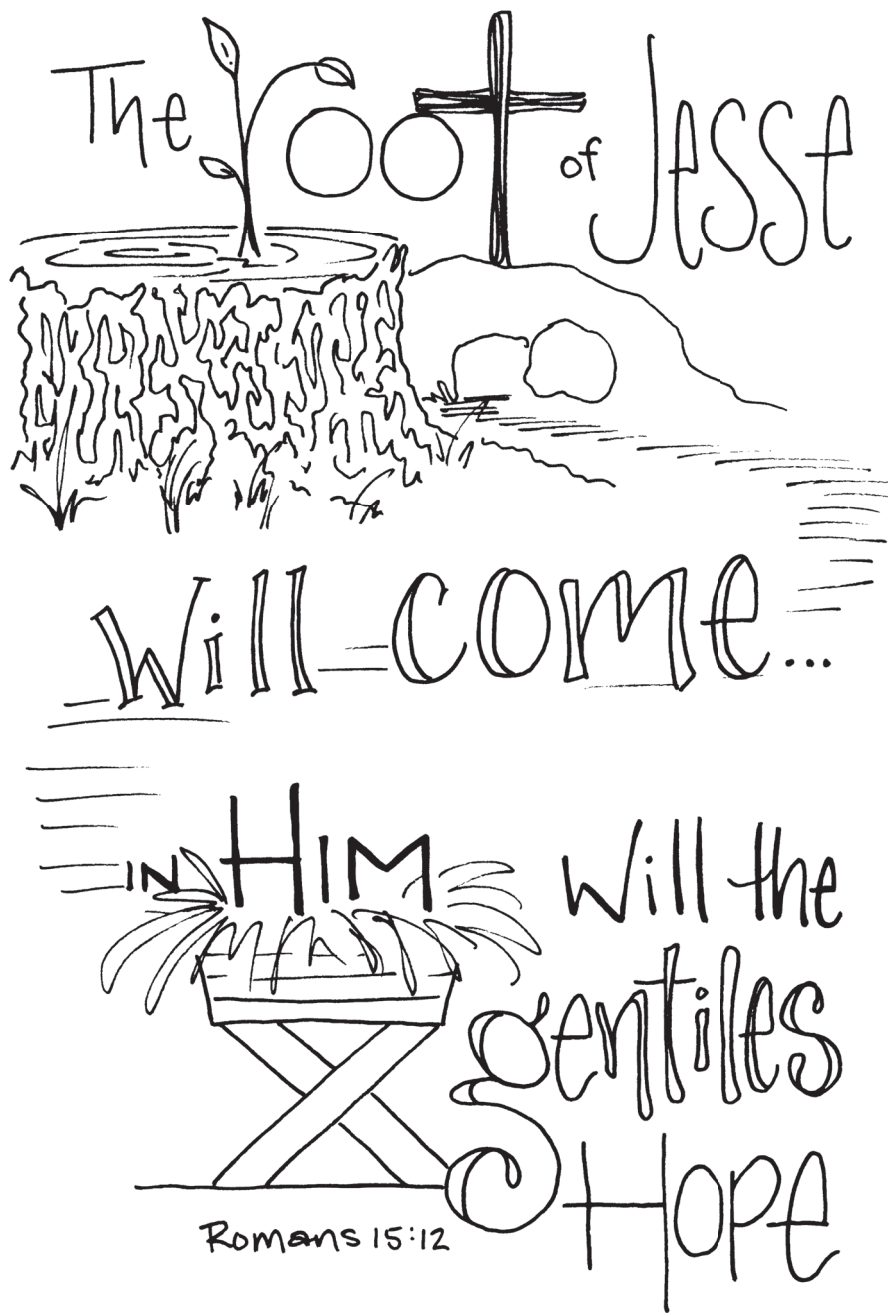 The root of Jesse
will come...
IN HIM will the
gentiles
Hope
Romans 15:12